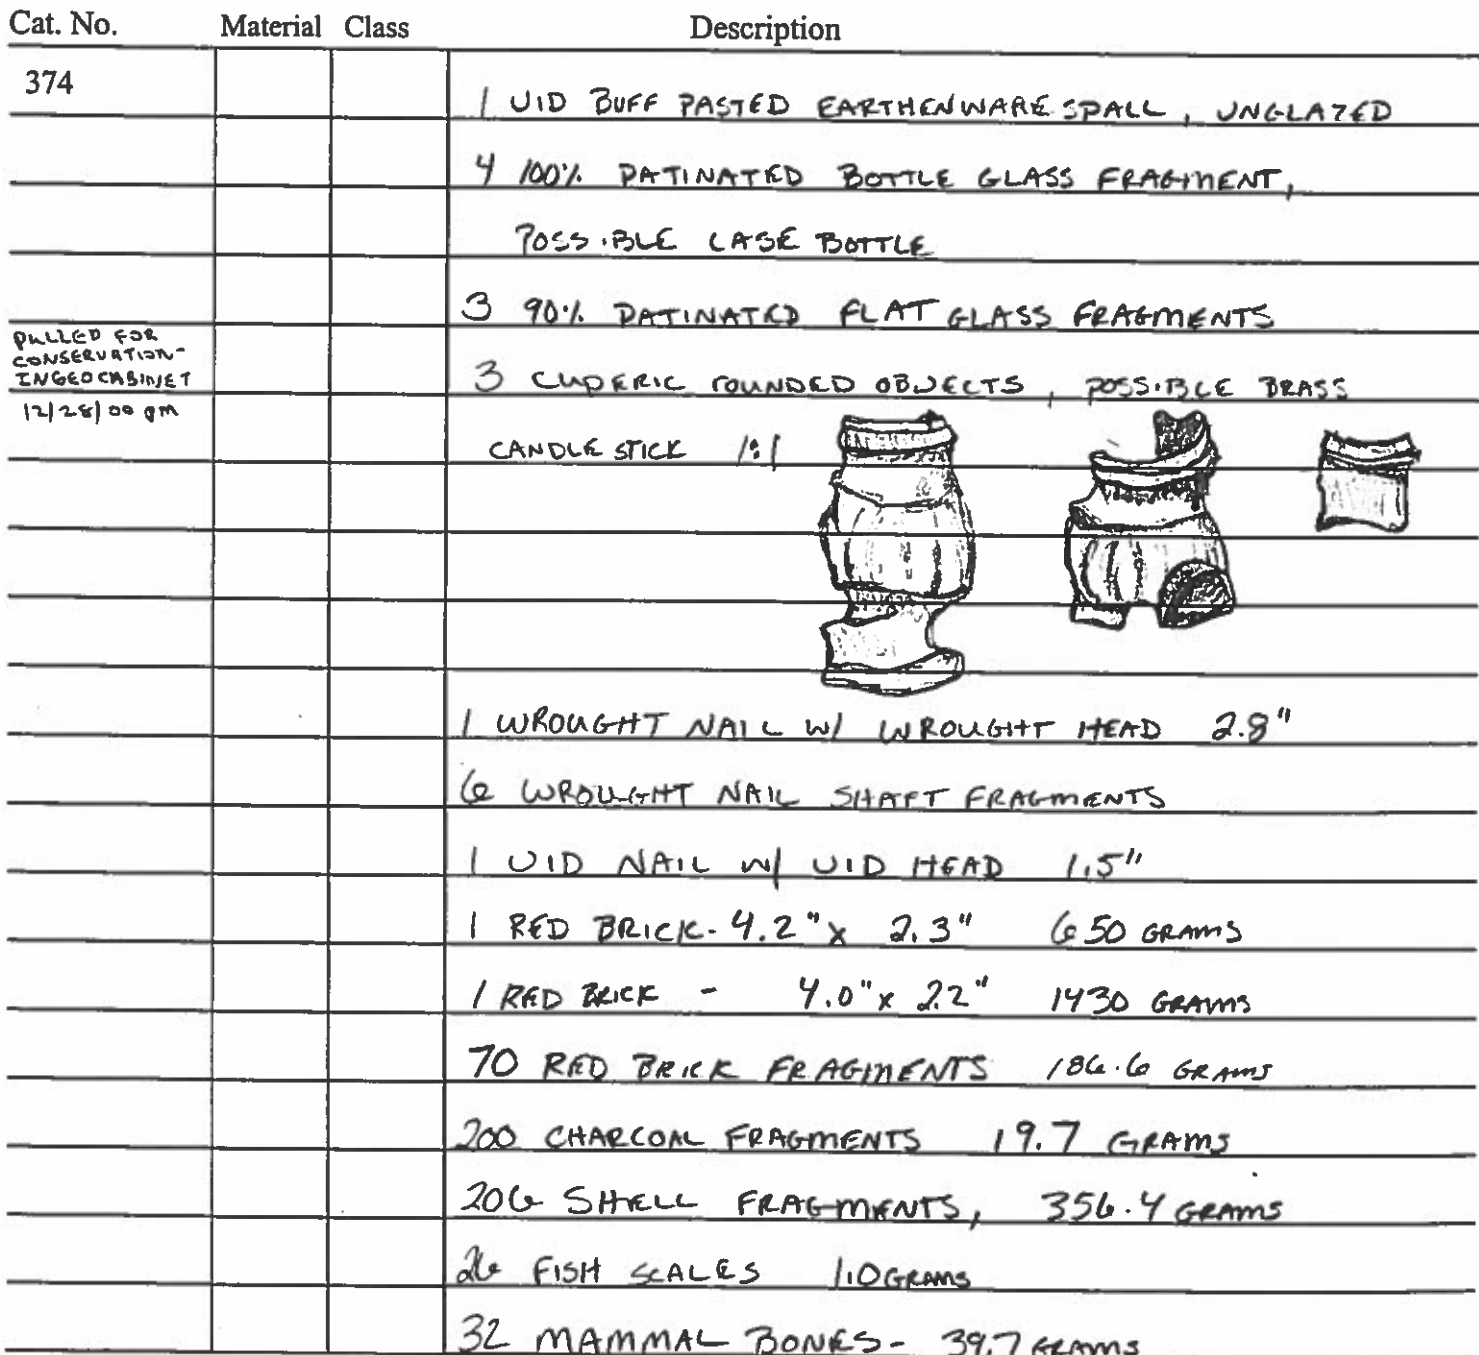 Cat. No. Material Class Description
374
1 UID BUFF PASTED EARTHENWARE SPALL, UNGLAZED
4 100% PATINATED BOTTLE GLASS FRAGMENT,
POSSIBLE CASE BOTTLE
3 90% PATINATED FLAT GLASS FRAGMENTS
PULLED FOR
CONSERVATION-
IN GEO CABINET
12/28/00 gm
3 CUPERIC ROUNDED OBJECTS, POSSIBLE BRASS
CANDLE STICK 1:1
1 WROUGHT NAIL W/ WROUGHT HEAD 2.8"
6 WROUGHT NAIL SHAFT FRAGMENTS
1 UID NAIL W/ UID HEAD 1.5"
1 RED BRICK- 4.2" x 2.3" 650 GRAMS
1 RED BRICK - 4.0" x 2.2" 1430 GRAMS
70 RED BRICK FRAGMENTS 186.6 GRAMS
200 CHARCOAL FRAGMENTS 19.7 GRAMS
206 SHELL FRAGMENTS, 356.4 GRAMS
26 FISH SCALES 1.0 GRAMS
32 MAMMAL BONES- 39.7 GRAMS